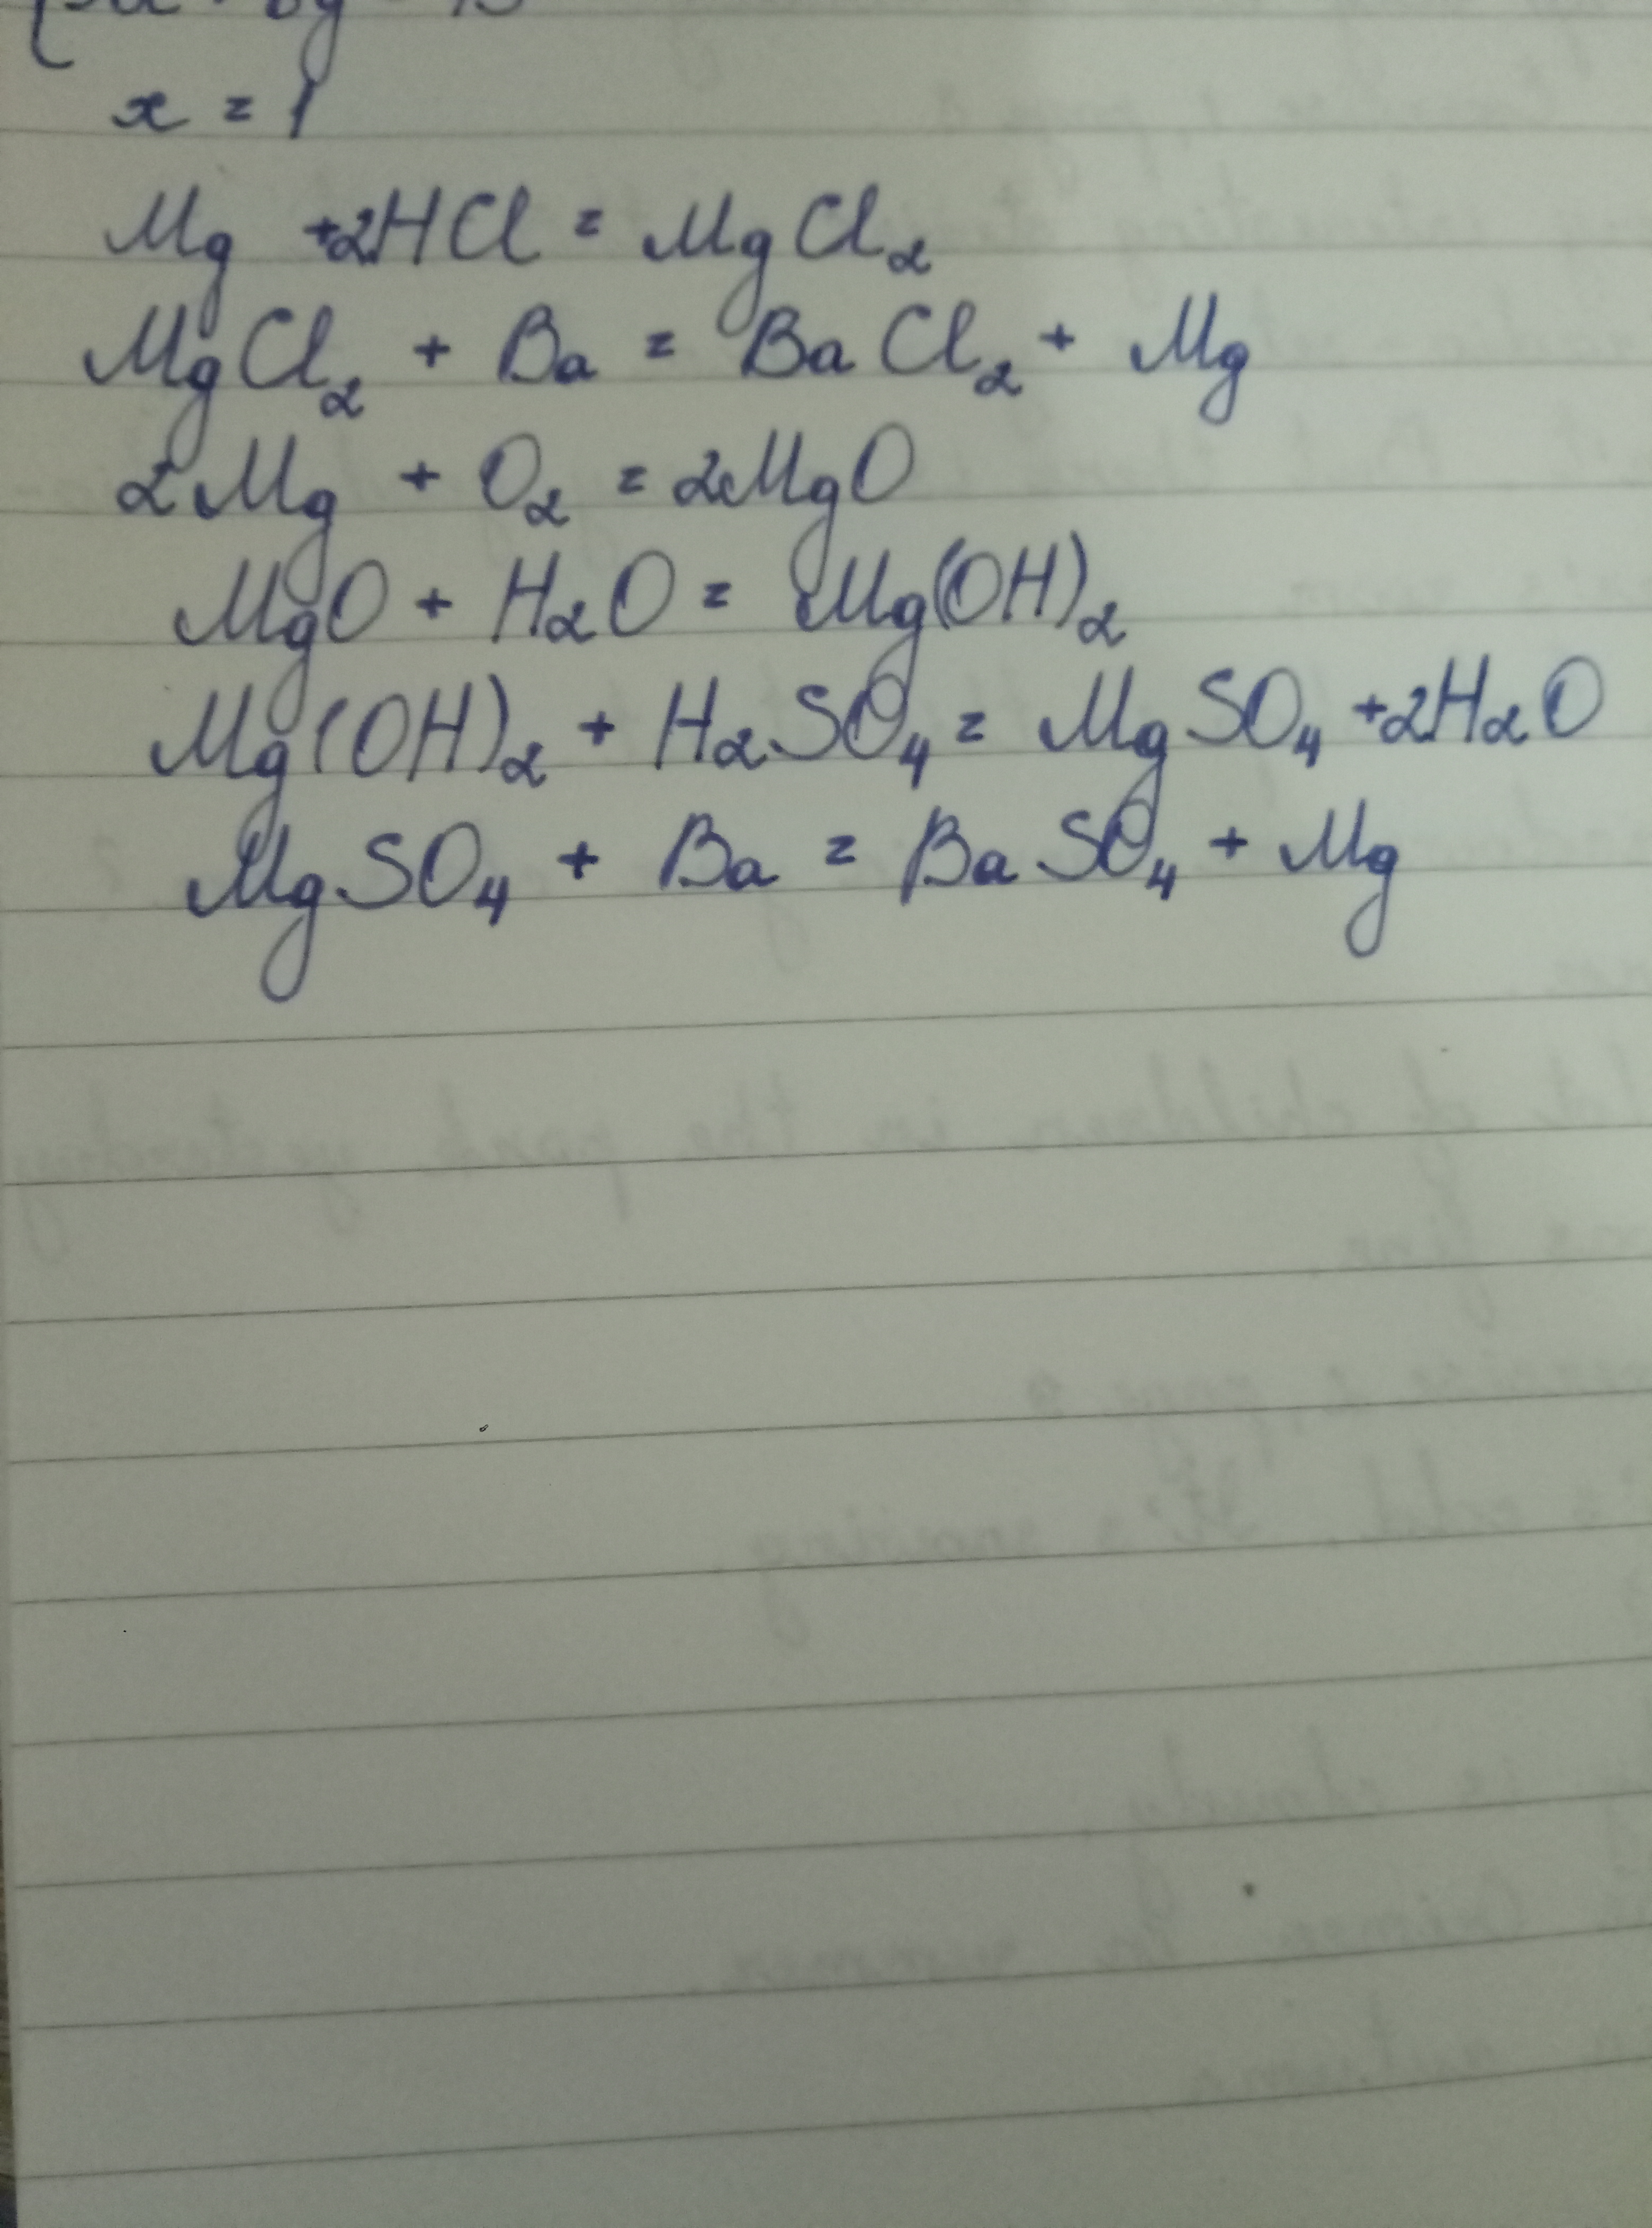 x = 1
Mg +2HCl = MgCl₂
MgCl₂ + Ba = BaCl₂ + Mg
2Mg + O₂ = 2MgO
MgO + H₂O = Mg(OH)₂
Mg(OH)₂ + H₂SO₄ = MgSO₄ +2H₂O
MgSO₄ + Ba = BaSO₄ + Mg